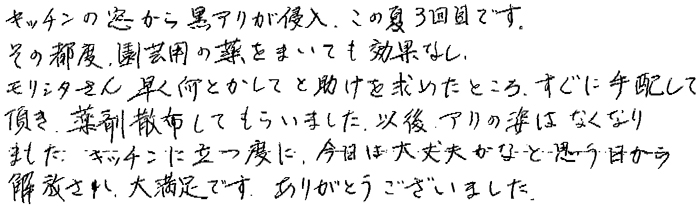 キッチンの窓から黒アリが侵入、この夏3回目です。
その都度、園芸用の薬をまいても効果なし、
モリシタさん早く何とかしてと助けを求めたところ、すぐに手配して
頂き、薬剤散布してもらいました、以後、アリの姿はなくなり
ました、キッチンに立つ度に、今日は大丈夫かなと思う日から
解放され、大満足です、ありがとうございました、